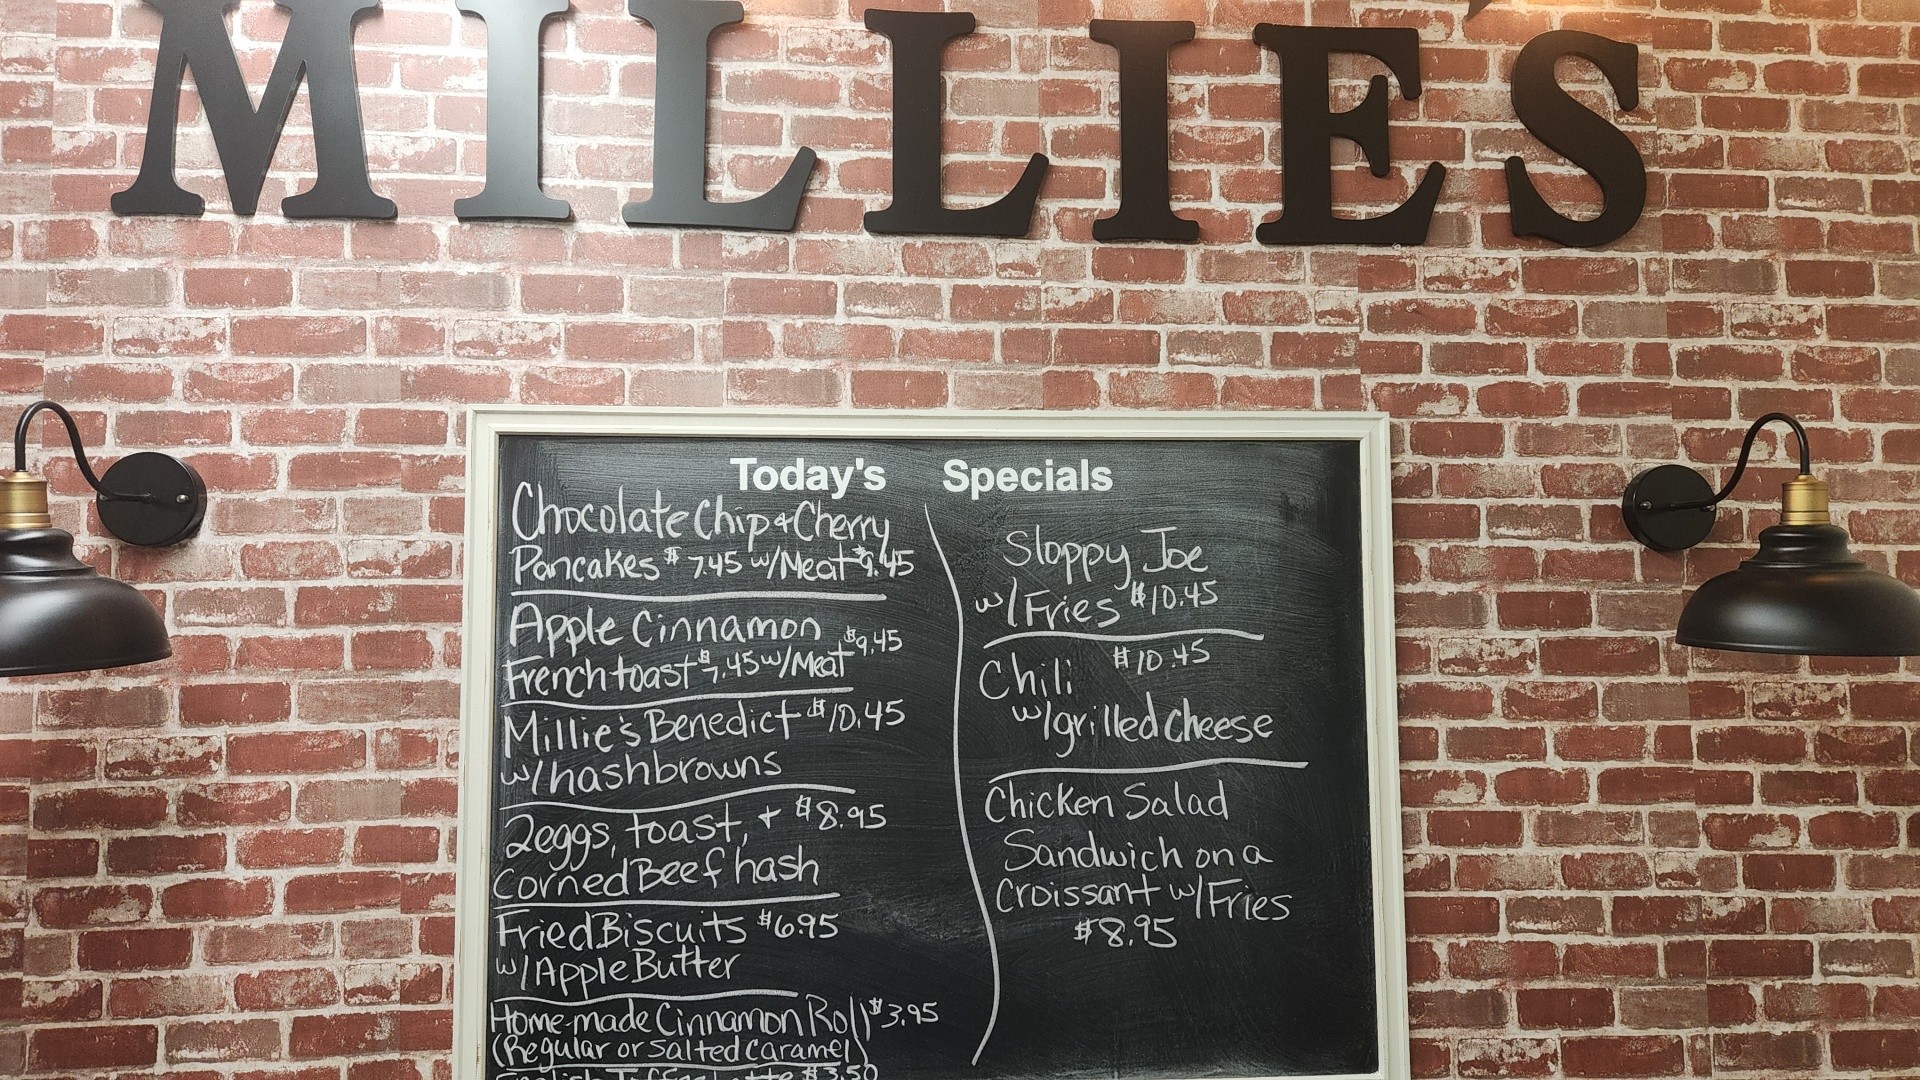 MILLIE'S
Today's Specials
Chocolate Chip + Cherry
Pancakes $7.45 w/Meat $9.45
Apple Cinnamon
French toast $7.45 w/Meat $9.45
Millie's Benedict $10.45
w/hashbrowns
2eggs, toast, + $8.95
Corned Beef hash
Fried Biscuits $6.95
w/Apple Butter
Home-made Cinnamon Roll $3.95
(Regular or salted caramel)
English Toffee Latte $3.50
Sloppy Joe
w/Fries $10.45
Chili $10.45
w/grilled cheese
Chicken Salad
Sandwich on a
Croissant w/Fries
$8.95